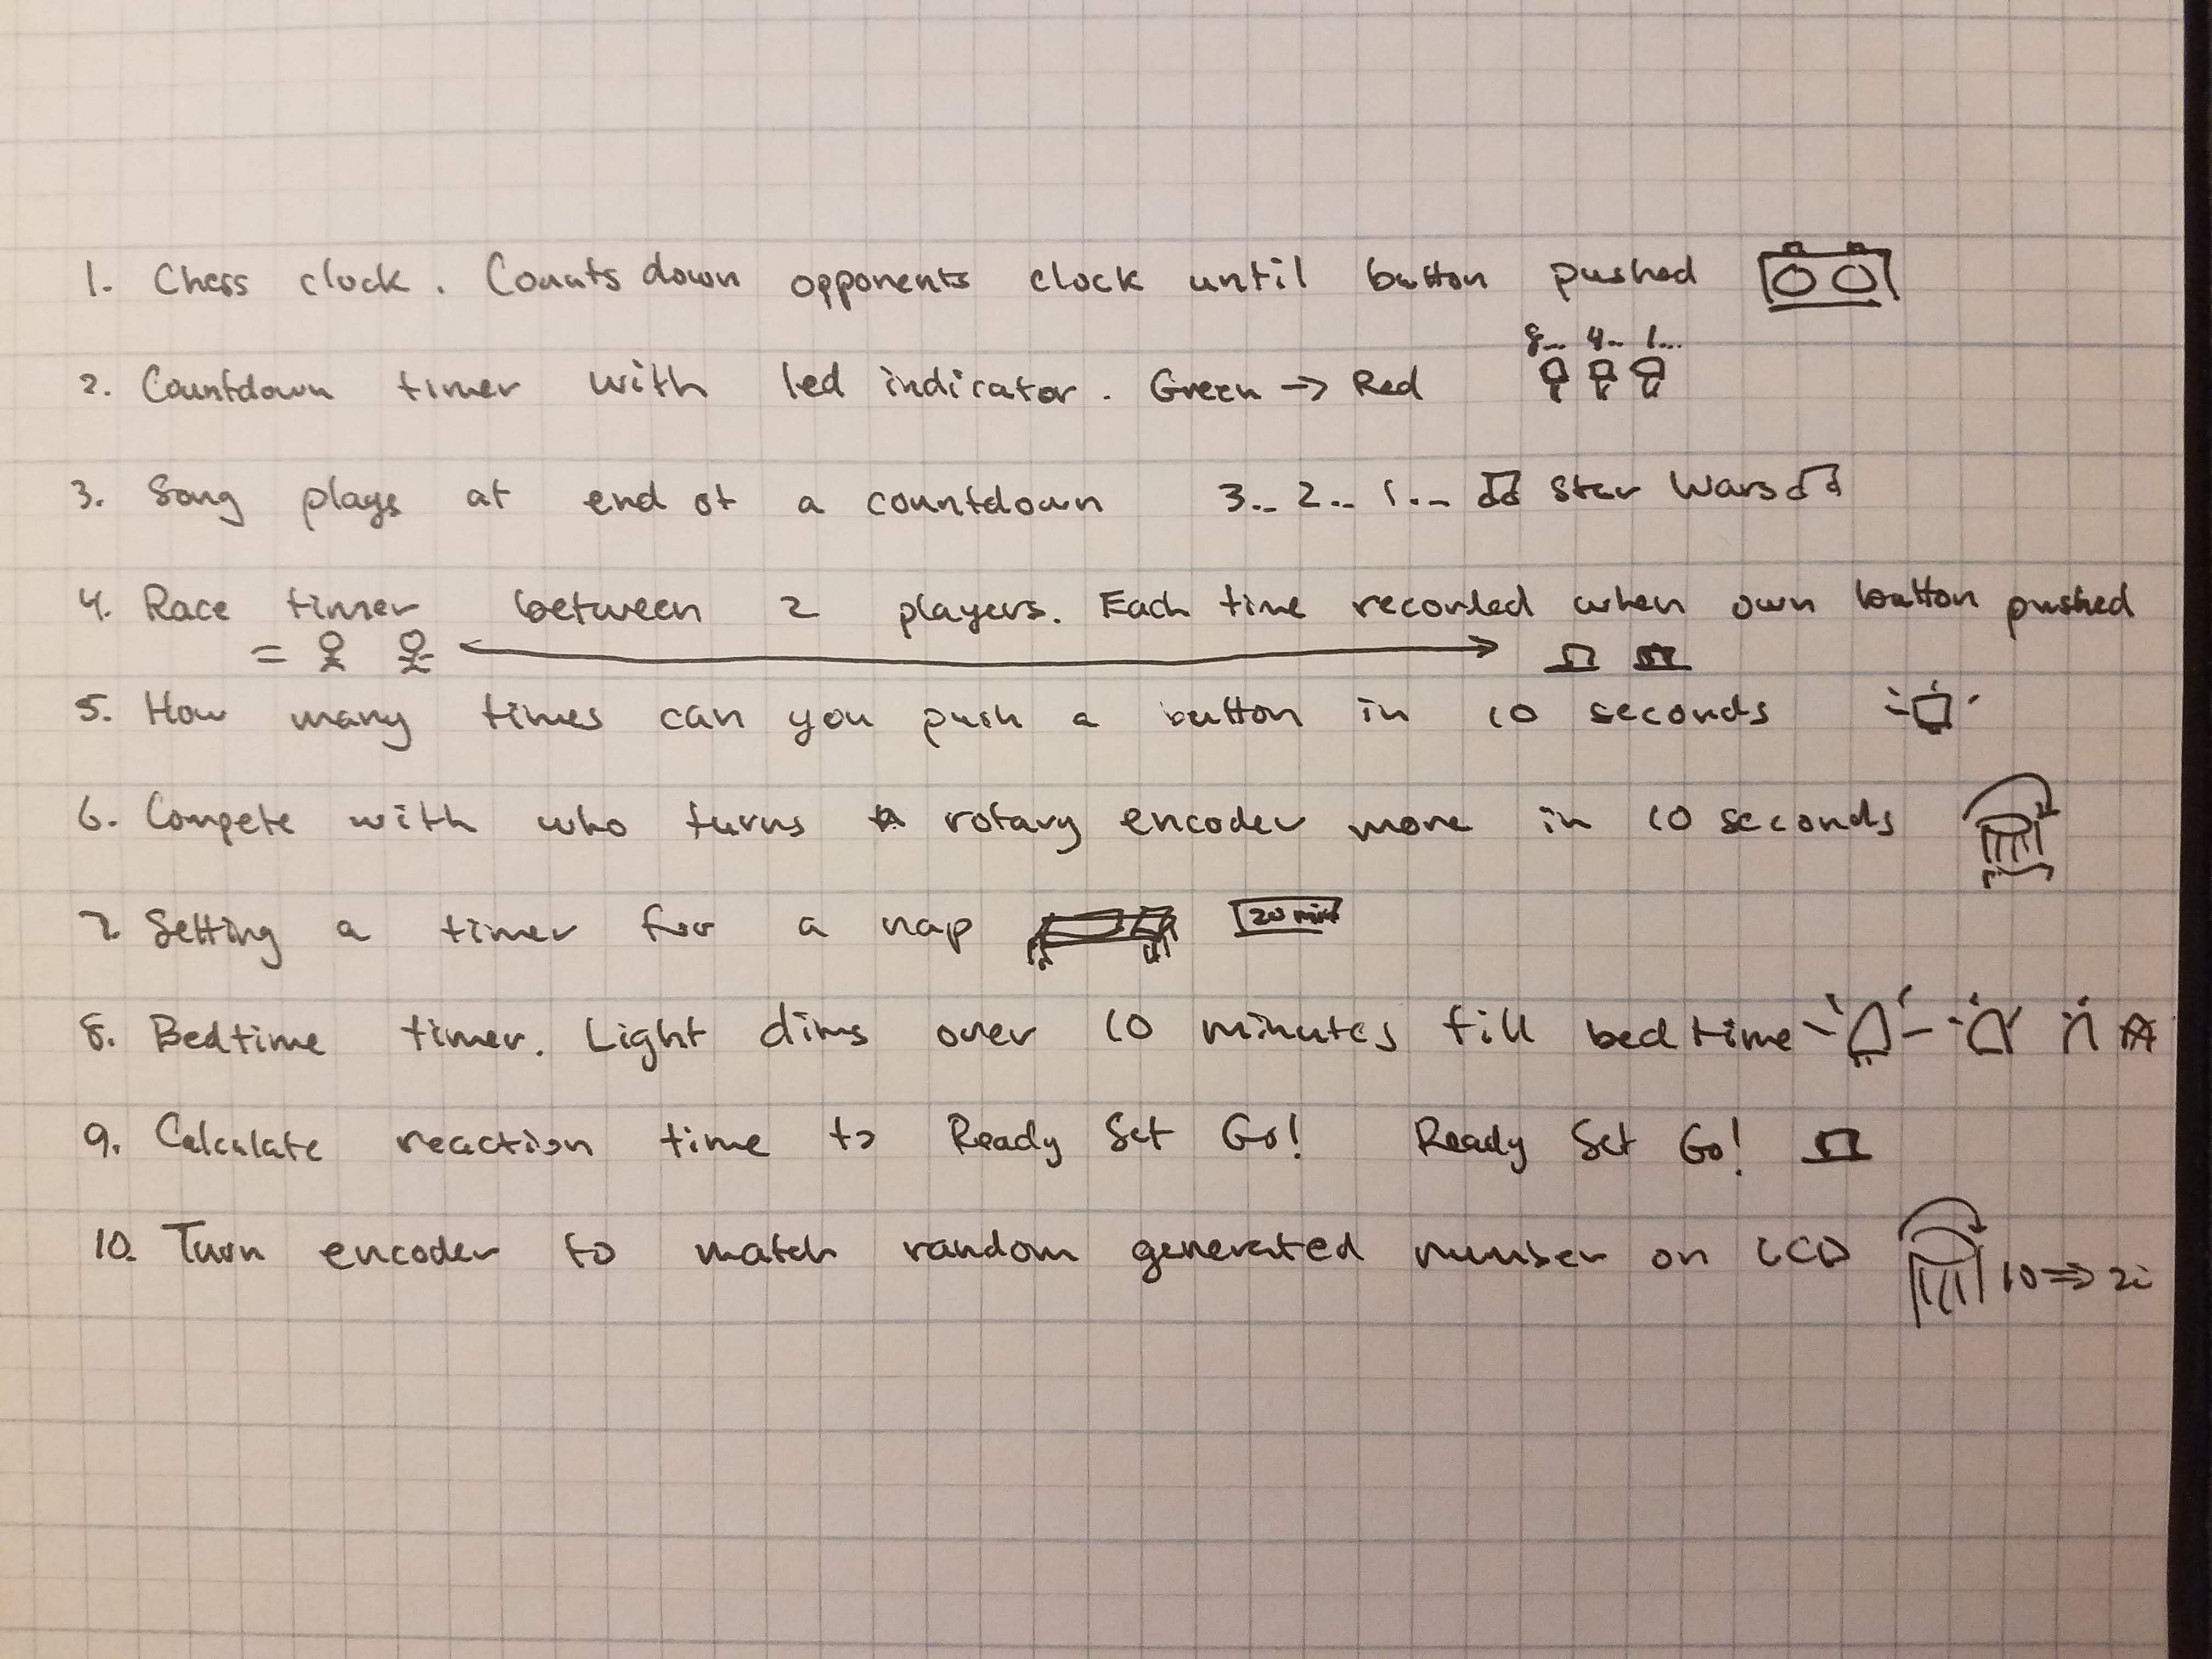 1. Chess clock. Counts down opponents clock until button pushed
8... 4.. 1...
2. Countdown timer with led indicator. Green → Red
3. Song plays at end of a countdown 3.. 2.. 1... ♫ Star Wars ♫
4. Race timer between 2 players. Each time recorded when own button pushed
5. How many times can you push a button in 10 seconds
6. Compete with who turns rotary encoder more in 10 seconds
7. Setting a timer for a nap 20 min
8. Bedtime timer. Light dims over 10 minutes till bedtime
9. Calculate reaction time to Ready Set Go! Ready Set Go!
10. Turn encoder to match random generated number on LCD
10 ⇒